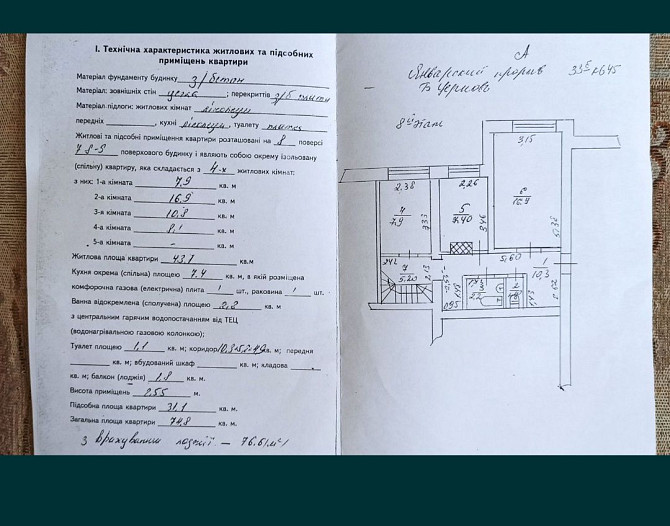 І. Технічна характеристика житлових та підсобних
приміщень квартири
Матеріал фундаменту будинку з/бетон
Матеріал: зовнішніх стін цегла ; перекриттів з/б плити
Матеріал підлоги: житлових кімнат лінолеум
передніх , кухні лінолеум, туалету плитка
Житлові та підсобні приміщення квартири розташовані на 8 поверсі
7-8-9 поверхового будинку і являють собою окрему ізольовану
(спільну) квартиру, яка складається з 4-х житлових кімнат:
з них: 1-а кімната 7.9 кв. м
2-а кімната 16.9 кв. м
3-я кімната 10.8 кв. м
4-а кімната 8.1 кв. м
5-а кімната - кв. м
Житлова площа квартири 43.7 кв.м
Кухня окрема (спільна) площею 7.4 кв. м, в якій розміщена
комфорочна газова (електрична) плита 1 шт., раковина 1 шт.
Ванна відокремлена (сполучена) площею 2.2 кв. м
з центральним гарячим водопостачанням від ТЕЦ
(водонагрівальною газовою колонкою);
Туалет площею 1,1 кв. м; коридор кв. м; передня
кв. м; вбудований шкаф кв. м; кладова
кв. м; балкон (лоджія) 1.8 кв. м.
Висота приміщень 2.55 м.
Підсобна площа квартири 31,1 кв. м.
Загальна площа квартири 74,8 кв. м.
з врахуванням лоджії — 76.6 м²
А
Январский прорыв
8й этаж
3,15
2,38
2,26
4
7,9
3.33
5
7.40
3.46
6
16,9
5.32
5,60
1
10,3
2.42
7
5.20
2,13
3
2.2
2
0.95
1,43
2.62